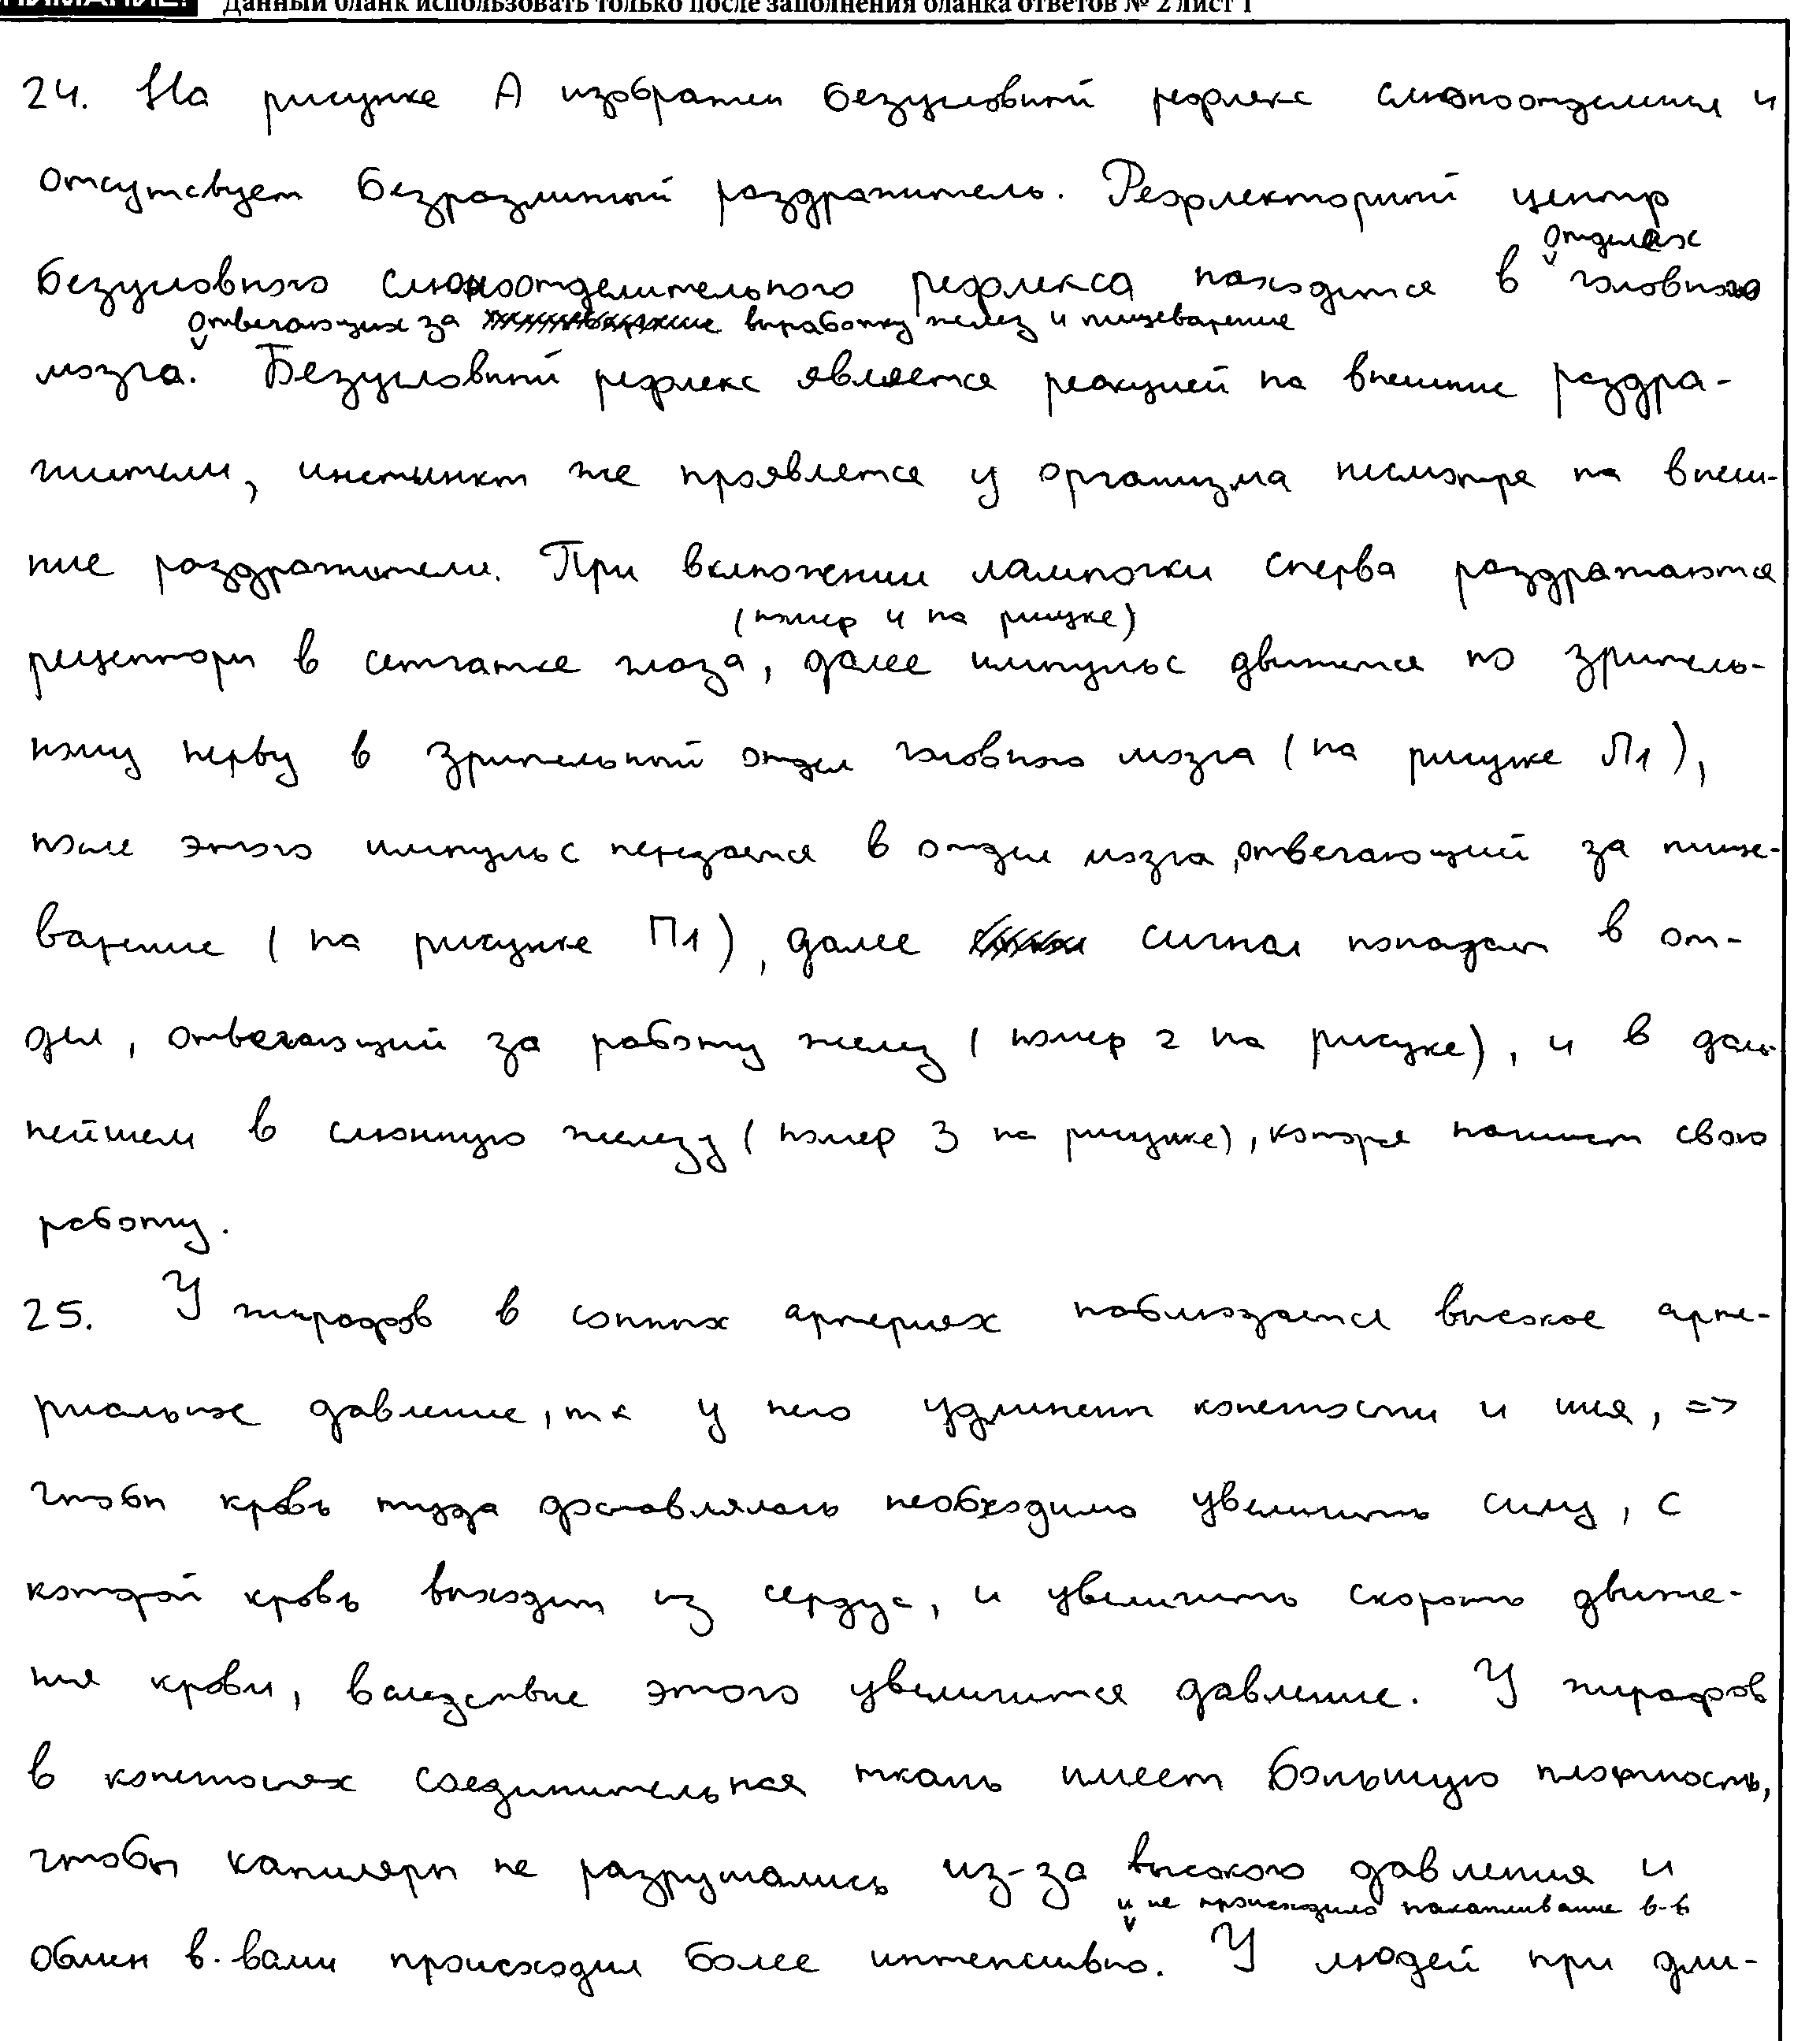 Данный бланк использовать только после заполнения бланка ответов № 2 лист 1
24. На рисунке А изображен безусловный рефлекс слюноотделения и
отсутсвует безразличный раздражитель. Рефлекторный центр
отделах
безусловного слюноотделительного рефлекса находится в головного
отвечающих за выработку желез и пищеварение
мозга. Безусловный рефлекс является реакцией на внешние раздра-
жители, инстинкт же проявлется у организма несмотря на внеш-
ние раздражители. При включении лампочки сперва раздражаются
(номер 4 на рисуке)
рецепторы в сетчатке глаза, далее импульс движется по зритель-
ному нерву в зрительный отдел головного мозга (на рисунке Л1),
после этого импульс передается в отдел мозга, отвечающий за пище-
варение (на рисунке П1), далее сигнал попадает в от-
дел, отвечающий за работу желез (номер 2 на рисуке), и в даль-
нейшем в слюнную железу (номер 3 на рисунке), которая начинает свою
работу.
25. У жирафов в сонных артериях наблюдается высокое арте-
риальное давление, т к у него удлинены конечности и шея, =>
чтобы кровь туда доставлялась необходимо увеличить силу, с
которой кровь выходит из сердца, и увеличить скорость движе-
ния крови, вследствие этого увеличится давление. У жирафов
в конечностях соединительная ткань имеет большую плотность,
чтобы капиляры не разрушались из-за высокого давления и
и не происходило накапливание в-в
обмен в-вами происходил более интенсивно. У людей при дли-